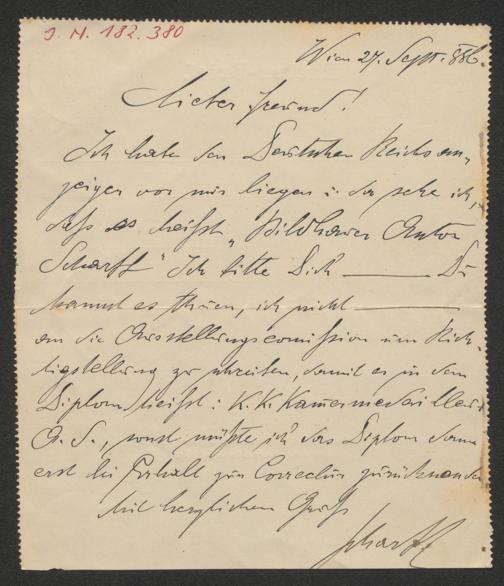 J. N. 182.380
Wien 27. Sept. 886.
Lieber Freund!
Ich habe den Deutschen Reichsan-
zeiger vor mir liegen u. da sehe ich,
daß es heißt „Bildhauer Anton
Scharff" Ich bitte Dich ——— Du
kannst es thuen, ich nicht ———
an die Ausstellungscomission um Rich-
tigstellung zu schreiben, damit es in dem
Diplom heißt: K. K. Kammermedailleur
A. S., sonst müßte ich das Diplom dann
erst bei Erhalt zur Correctur zurücksenden
Mit herzlichem Gruß
Scharff